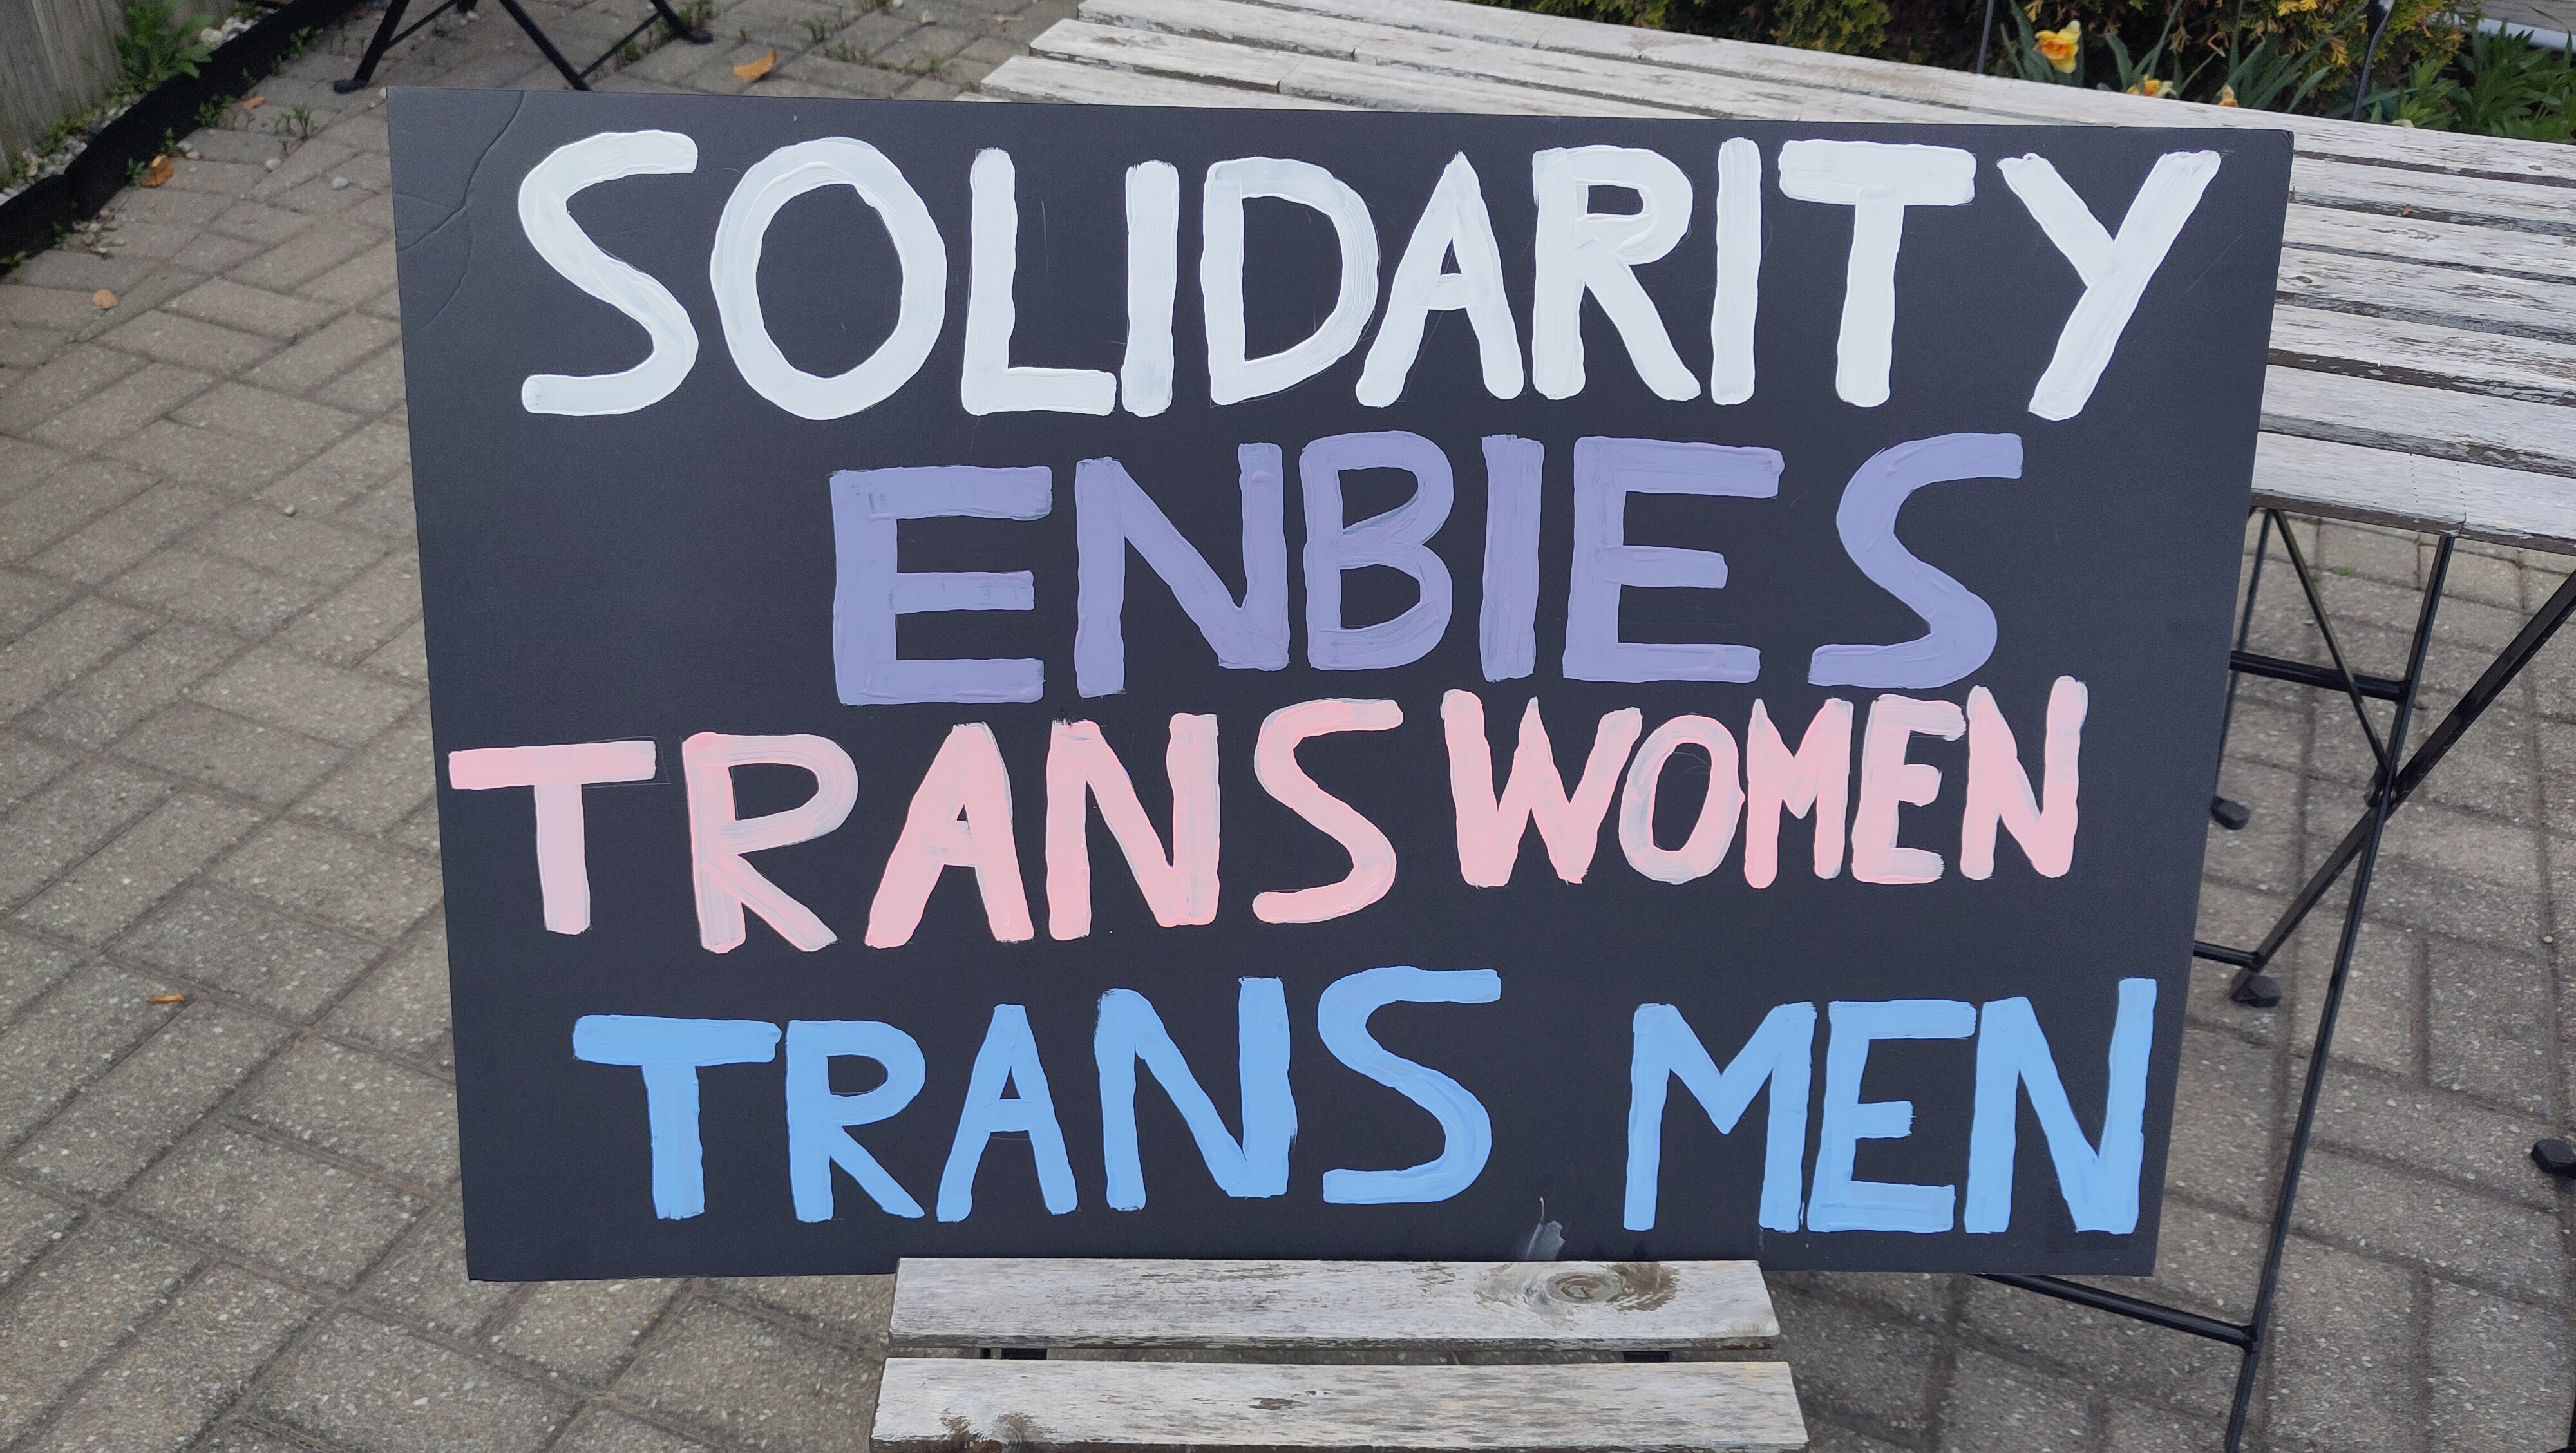 SOLIDARITY
ENBIES
TRANS WOMEN
TRANS MEN